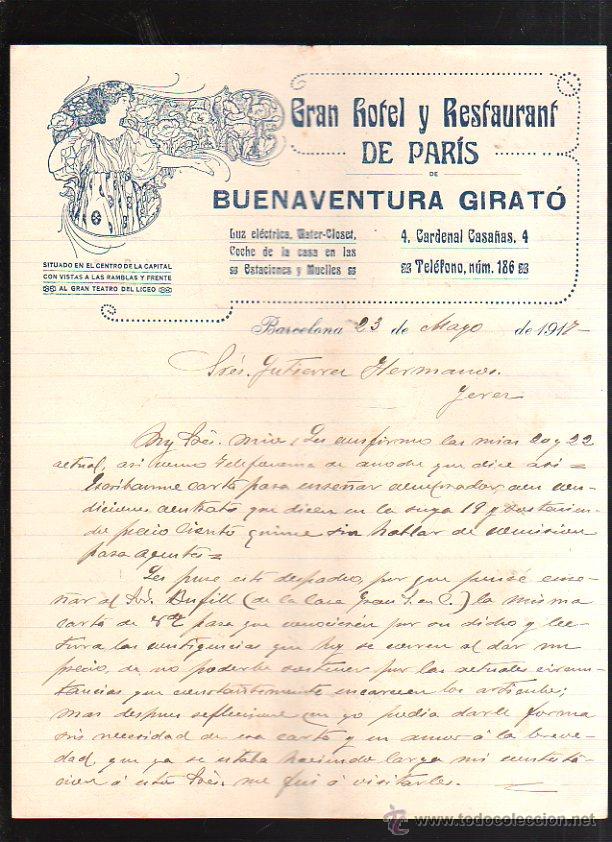 Gran Hotel y Restaurant
DE PARÍS
DE
BUENAVENTURA GIRATÓ
Luz eléctrica, Water-Closet,
Coche de la casa en las
Estaciones y Muelles
4, Cardenal Casañas, 4
Teléfono, núm. 186
SITUADO EN EL CENTRO DE LA CAPITAL
CON VISTAS A LAS RAMBLAS Y FRENTE
AL GRAN TEATRO DEL LICEO
Barcelona 23 de Mayo de 1917
Srés. Gutierrez Hermanos.
Jerez
My Srés. mios; Les confirmo las mias 20 y 22
actual, asi como telefonema de anoche que dice asi =
Escribanme carta para enseñar comprador con con-
diciones contrato que dicen en la suya 19 y sostenien-
do precio ciento quince sin hablar de comision
para agentes =
Les puse este despacho, por que pensé ense-
ñar al Sór. Bufill (de la Casa S. en C.) la misma
carta de para que conociesen por su dicho y lec-
tura las contigencias que hoy se corren al dar un
precio, de no poderlo sostener por las actuales circuns-
tancias que constantemente encarecen los articulos;
mas despues reflexioné que yo podia darle forma
sin necesidad de esa carta y en amor á la breve-
dad, que ya se estaba haciendo larga mi contesta-
cion á estos Srés. me fui á visitarles. —
www.todocoleccion.net